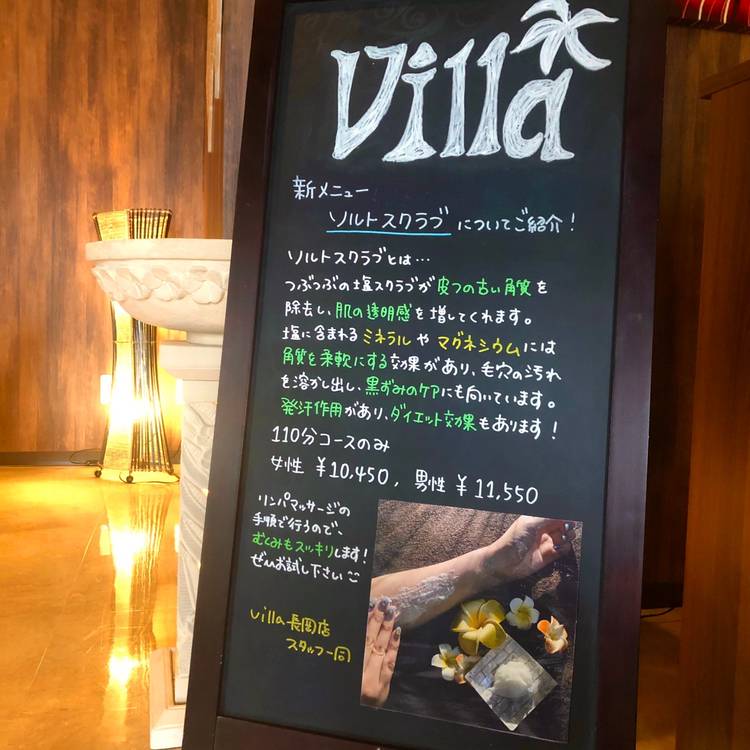 Villa
新メニュー
ソルトスクラブについてご紹介!
ソルトスクラブとは…
つぶつぶの塩スクラブが皮つの古い角質を
除去し、肌の透明感を増してくれます。
塩に含まれるミネラルやマグネシウムには
角質を柔軟にする効果があり、毛穴の汚れ
を溶かし出し、黒ずみのケアにも向いています。
発汗作用があり、ダイエット効果もあります!
110分コースのみ
女性 ¥10,450, 男性 ¥11,550
リンパマッサージの
手順で行うので、
むくみもスッキリします!
ぜひお試し下さい
Villa長岡店
スタッフ一同